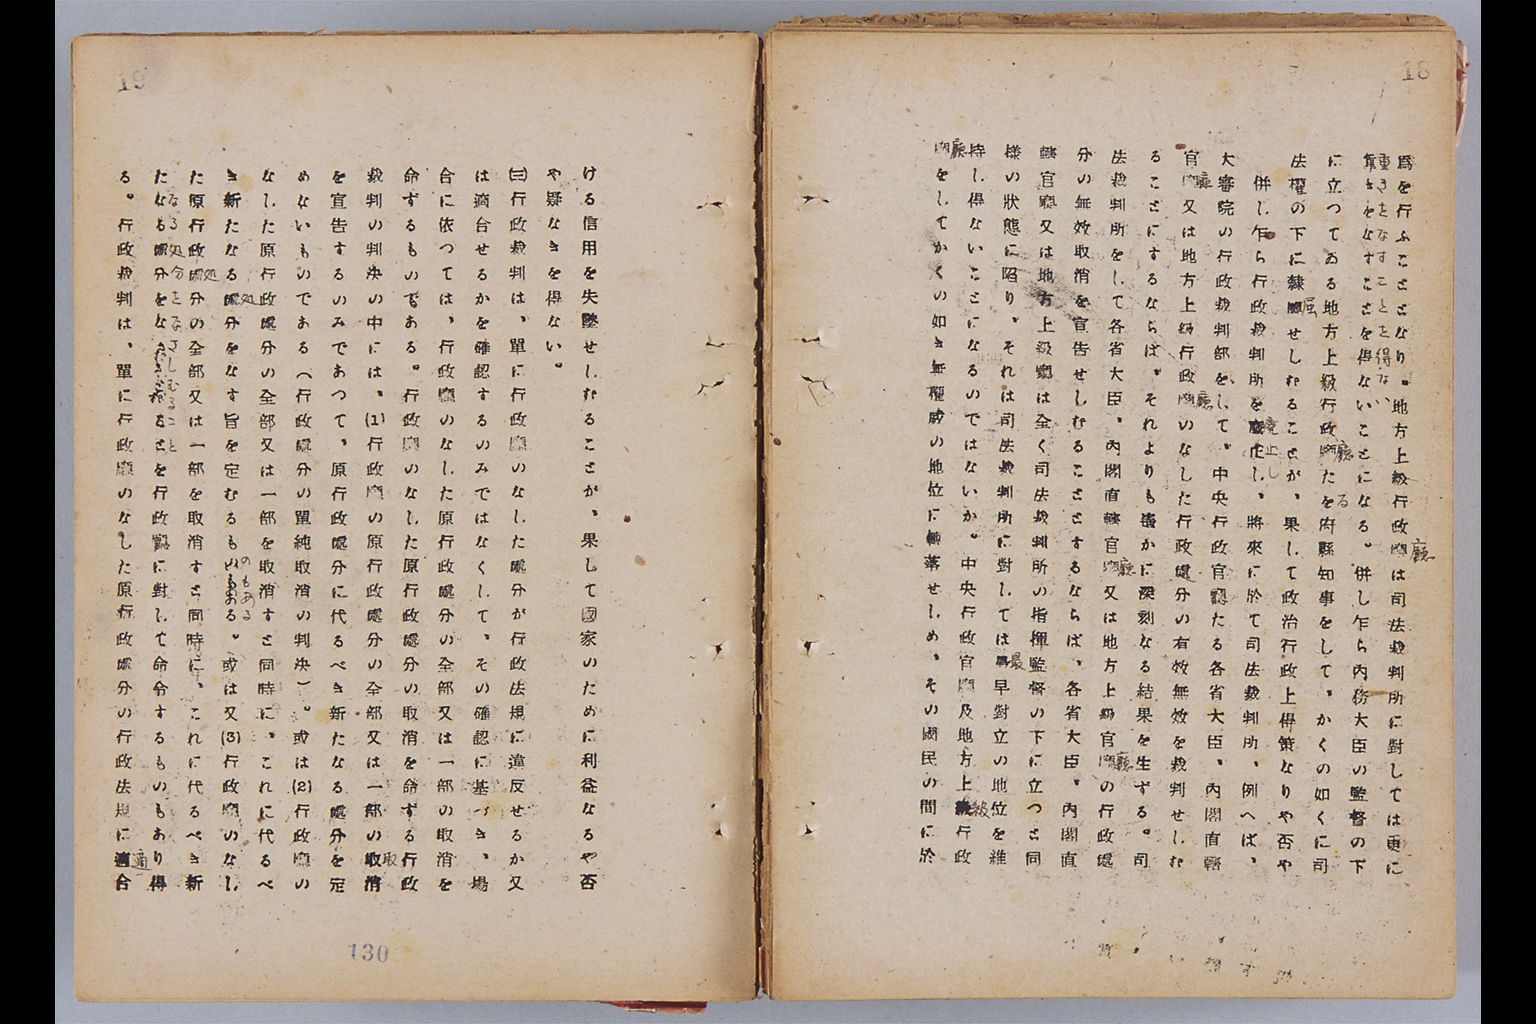 18
爲を行ふことゝなり。地方上級行政廳は司法裁判所に對しては更に
重きをなすことを得ない
重きをなすことを得ないことになる。併し乍ら內務大臣の監督の下
に立つてゐる地方上級行政廳たる府縣知事をして、かくの如くに司
法權の下に隸屬せしむることが、果して政治行政上得策なりや否や
併し乍ら行政裁判所を廢止し、將來に於て司法裁判所、例へば、
大審院の行政裁判部をして、中央行政官廳たる各省大臣、內閣直轄
官廳又は地方上級行政廳のなした行政處分の有效無效を裁判せしむ
ることにするならば、それよりも遙かに深刻なる結果を生ずる。司
法裁判所をして各省大臣、內閣直轄官廳又は地方上級官廳の行政處
分の無效取消を宣告せしむることとするならば、各省大臣、內閣直
轄官廳又は地方上級廳は全く司法裁判所の指揮監督の下に立つと同
樣の狀態に陷り、それは司法裁判所に對しては最早對立の地位を維
持し得ないことになるのではないか。中央行政官廳及地方上級行政
廳をしてかくの如き無權威の地位に轉落せしめ、その國民の間に於
19
ける信用を失墜せしむることが、果して國家のために利益なるや否
や疑なきを得ない。
㈢行政裁判は、單に行政廳のなした處分が行政法規に違反せるか又
は適合せるかを確認するのみではなくして、その確認に基づき、場
合に依つては、行政廳のなした原行政處分の全部又は一部の取消を
命ずるものである。行政廳のなした原行政處分の取消を命ずる行政
裁判の判決の中には、(1)行政廳の原行政處分の全部又は一部の取消
を宣告するのみであつて、原行政處分に代るべき新たなる處分を定
めないものである(行政處分の單純取消の判決)。或は(2)行政廳の
なした原行政處分の全部又は一部を取消すと同時に、これに代るべ
き新たなる處分をなす旨を定むるものもある。或は又(3)行政廳のなし
た原行政處分の全部又は一部を取消すと同時に、これに代るべき新
なる処分をなさしむること
たなる處分をなさしむることを行政廳に對して命令するものもあり得
る。行政裁判は、單に行政廳のなした原行政處分の行政法規に適合
130